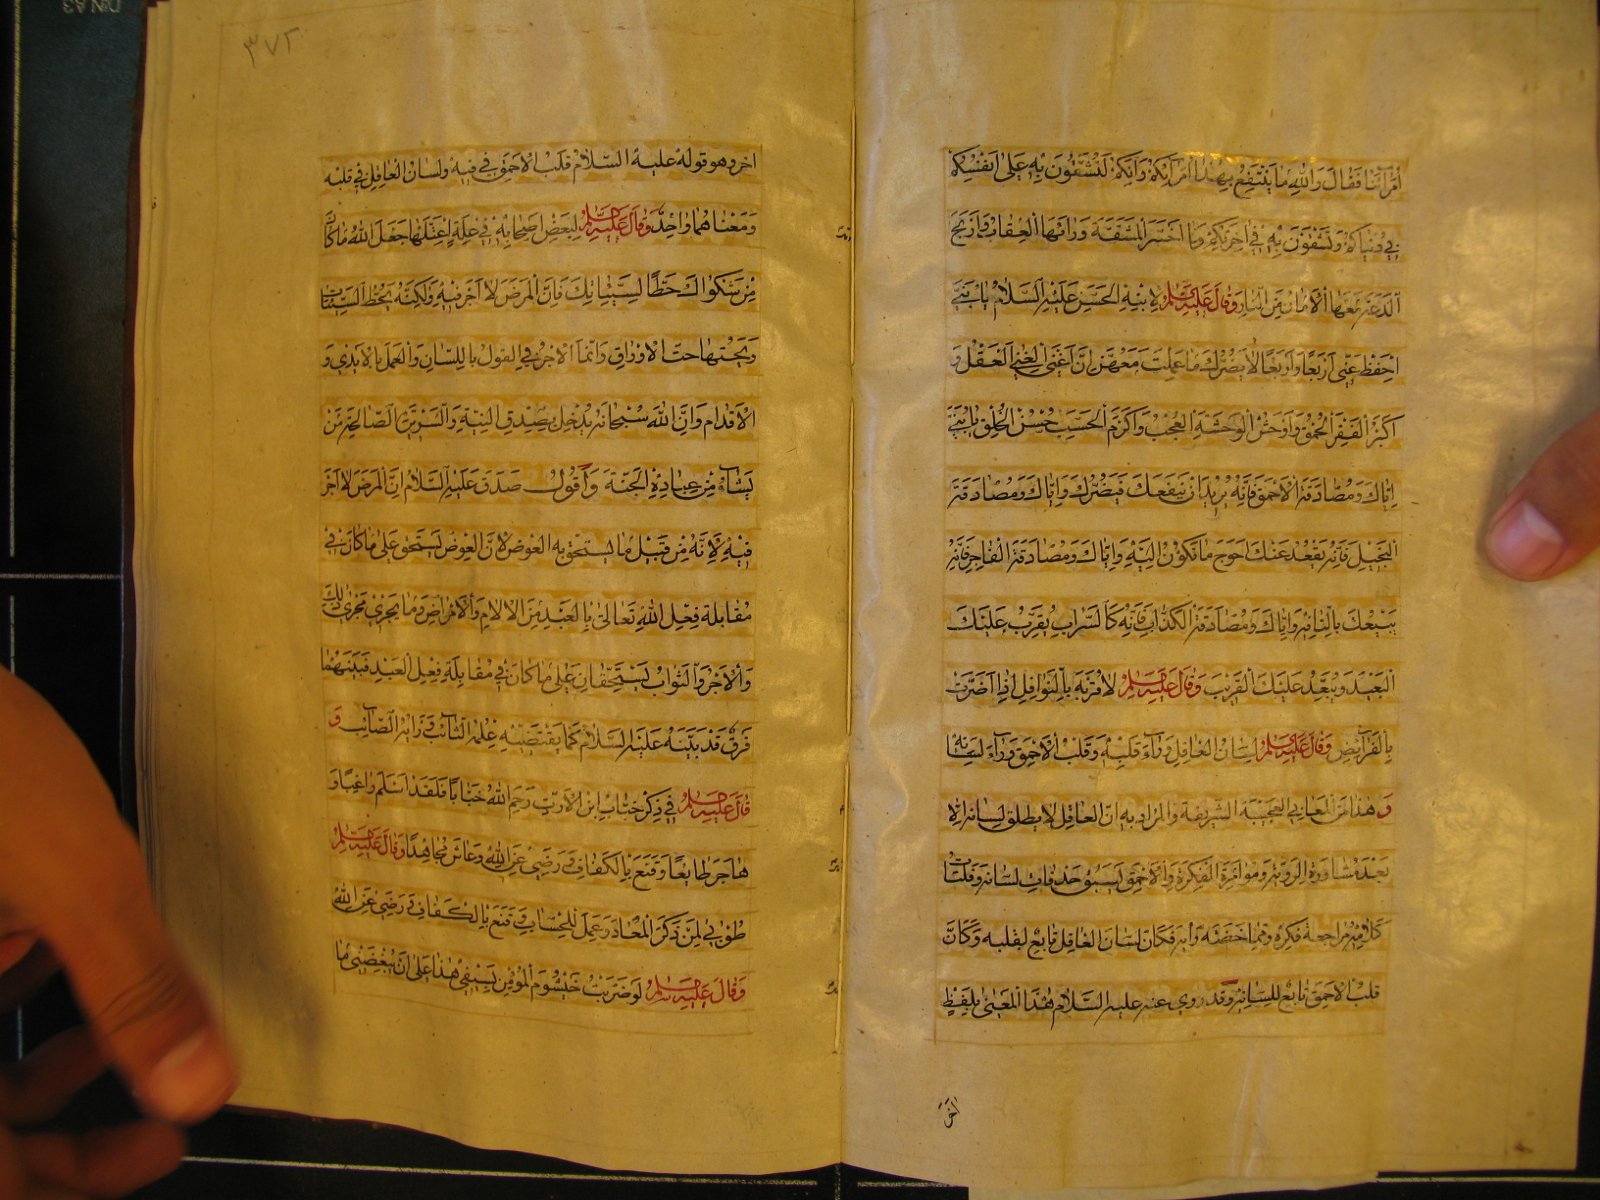 امراؤنا فقال والله ما ينتفع بهذا امراؤكم وانكم لتشقون به على انفسكم
في دنياكم وتشقون به في اخرتكم وما اخسر المشقة وراءها العقاب وما اربح
الدعة معها الامان من النار وقال عليه السلام لابنه الحسن عليه السلام يا بني
احفظ عني اربعا واربعا لا يضرك ما عملت معهن ان اغنى الغنى العقل و
اكبر الفقر الحمق واوحش الوحشة العجب واكرم الحسب حسن الخلق يا بني
اياك ومصادقة الاحمق فانه يريد ان ينفعك فيضرك واياك ومصادقة
البخيل فانه يقعد عنك احوج ما تكون اليه واياك ومصادقة الفاجر فانه
يبيعك بالتافه واياك ومصادقة الكذاب فانه كالسراب يقرب عليك
البعيد ويبعد عليك القريب وقال عليه السلام لا قربة بالنوافل اذا اضرت
بالفرايض وقال عليه السلام لسان العاقل وراء قلبه وقلب الاحمق وراء لسانه
و هذا من المعاني العجيبة الشريفة والمراد به ان العاقل لا يطلق لسانه الا
بعد مشاورة الروية ومؤامرة الفكرة والاحمق تسبق حذفات لسانه وفلتات
كلامه مراجعة فكره ومماخضة رايه فكان لسان العاقل تابع لقلبه وكان
قلب الاحمق تابع للسانه وقد روي عنه عليه السلام هذا المعنى بلفظ
اخر
٣٧٢
اخر وهو قوله عليه السلام قلب الاحمق في فيه ولسان العاقل في قلبه
ومعناهما واحد وقال عليه السلام لبعض اصحابه في علة اعتلها جعل الله ما كان
من شكواك حطا لسيئاتك فان المرض لا اجر فيه ولكنه يحط السيئات
ويحتها حت الاوراق وانما الاجر في القول باللسان والعمل بالايدي و
الاقدام وان الله سبحانه يدخل بصدق النية والسريرة الصالحة من
يشاء من عباده الجنة واقول صدق عليه السلام ان المرض لا اجر
فيه لانه من قبيل ما يستحق به العوض لان العوض يستحق على ما كان في
مقابلة فعل الله تعالى بالعبد من الالام والامراض وما يجري مجرى ذلك
والاجر والثواب يستحقان على ما كان في مقابلة فعل العبد فبينهما
فرق قد بينه عليه السلام كما يقتضيه علمه الثاقب ورايه الصائب و
قال عليه السلام في ذكر خباب ابن الارت رحم الله خبابا فلقد اسلم راغبا و
هاجر طايعا وقنع بالكفاف ورضي عن الله وعاش مجاهدا وقال عليه السلام
طوبى لمن ذكر المعاد وعمل للحساب وقنع بالكفاف ورضي عن الله
وقال عليه السلام لو ضربت خيشوم المؤمن بسيفي هذا على ان يبغضني ما